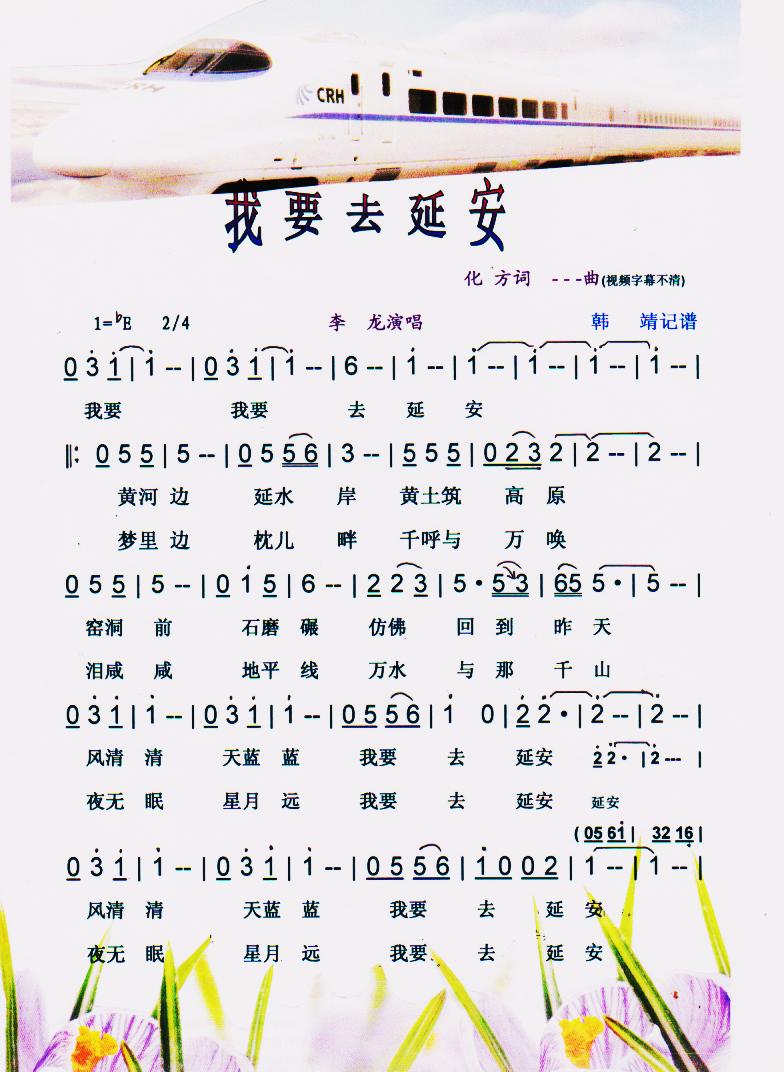 CRH
我要去延安
化 方词 ---曲(视频字幕不清)
1=♭E 2/4 李 龙演唱 韩 靖记谱
0 3 1 | 1 -- | 0 3 1 | 1 -- | 6 -- | 1 -- | 1 -- | 1 -- | 1 -- | 1 -- |
我要 我要 去 延 安
‖: 0 5 5 | 5 -- | 0 5 5 6 | 3 -- | 5 5 5 | 0 2 3 2 | 2 -- | 2 -- |
黄河 边 延水 岸 黄土筑 高 原
梦里 边 枕儿 畔 千呼与 万 唤
0 5 5 | 5 -- | 0 1 5 | 6 -- | 2 2 3 | 5 • 5 3 | 65 5 • | 5 -- |
窑洞 前 石磨 碾 仿佛 回 到 昨 天
泪咸 咸 地平 线 万水 与 那 千 山
0 3 1 | 1 -- | 0 3 1 | 1 -- | 0 5 5 6 | 1 0 | 2 2 • | 2 -- | 2 -- |
风清 清 天蓝 蓝 我要 去 延安 2 2 • | 2 --- |
夜无 眠 星月 远 我要 去 延安 延安
( 05 61 | 32 16 |
0 3 1 | 1 -- | 0 3 1 | 1 -- | 0 5 5 6 | 1 0 0 2 | 1 -- | 1 -- |
风清 清 天蓝 蓝 我要 去 延 安
夜无 眠 星月 远 我要 去 延 安